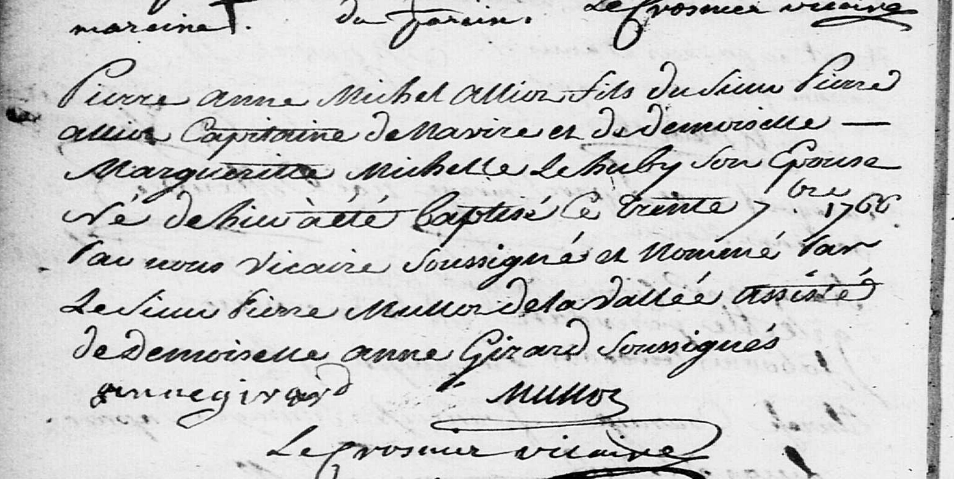 maraine. du parain. Le Crosnier vicaire
Pierre anne Michel Allioz fils du Sieur Pierre
allioz Capitaine de Navire et de demoiselle —
Margueritte Michelle Le huby son Epouse
Né de hier à été Baptisé Ce trente 7.bre 1766
Par nous vicaire Soussigné et Nommé Par
Le Sieur Pierre Mulloz de la Vallée assisté
de Demoiselle anne Girard Soussignés
anne girard Mulloz
Le Crosnier vicaire